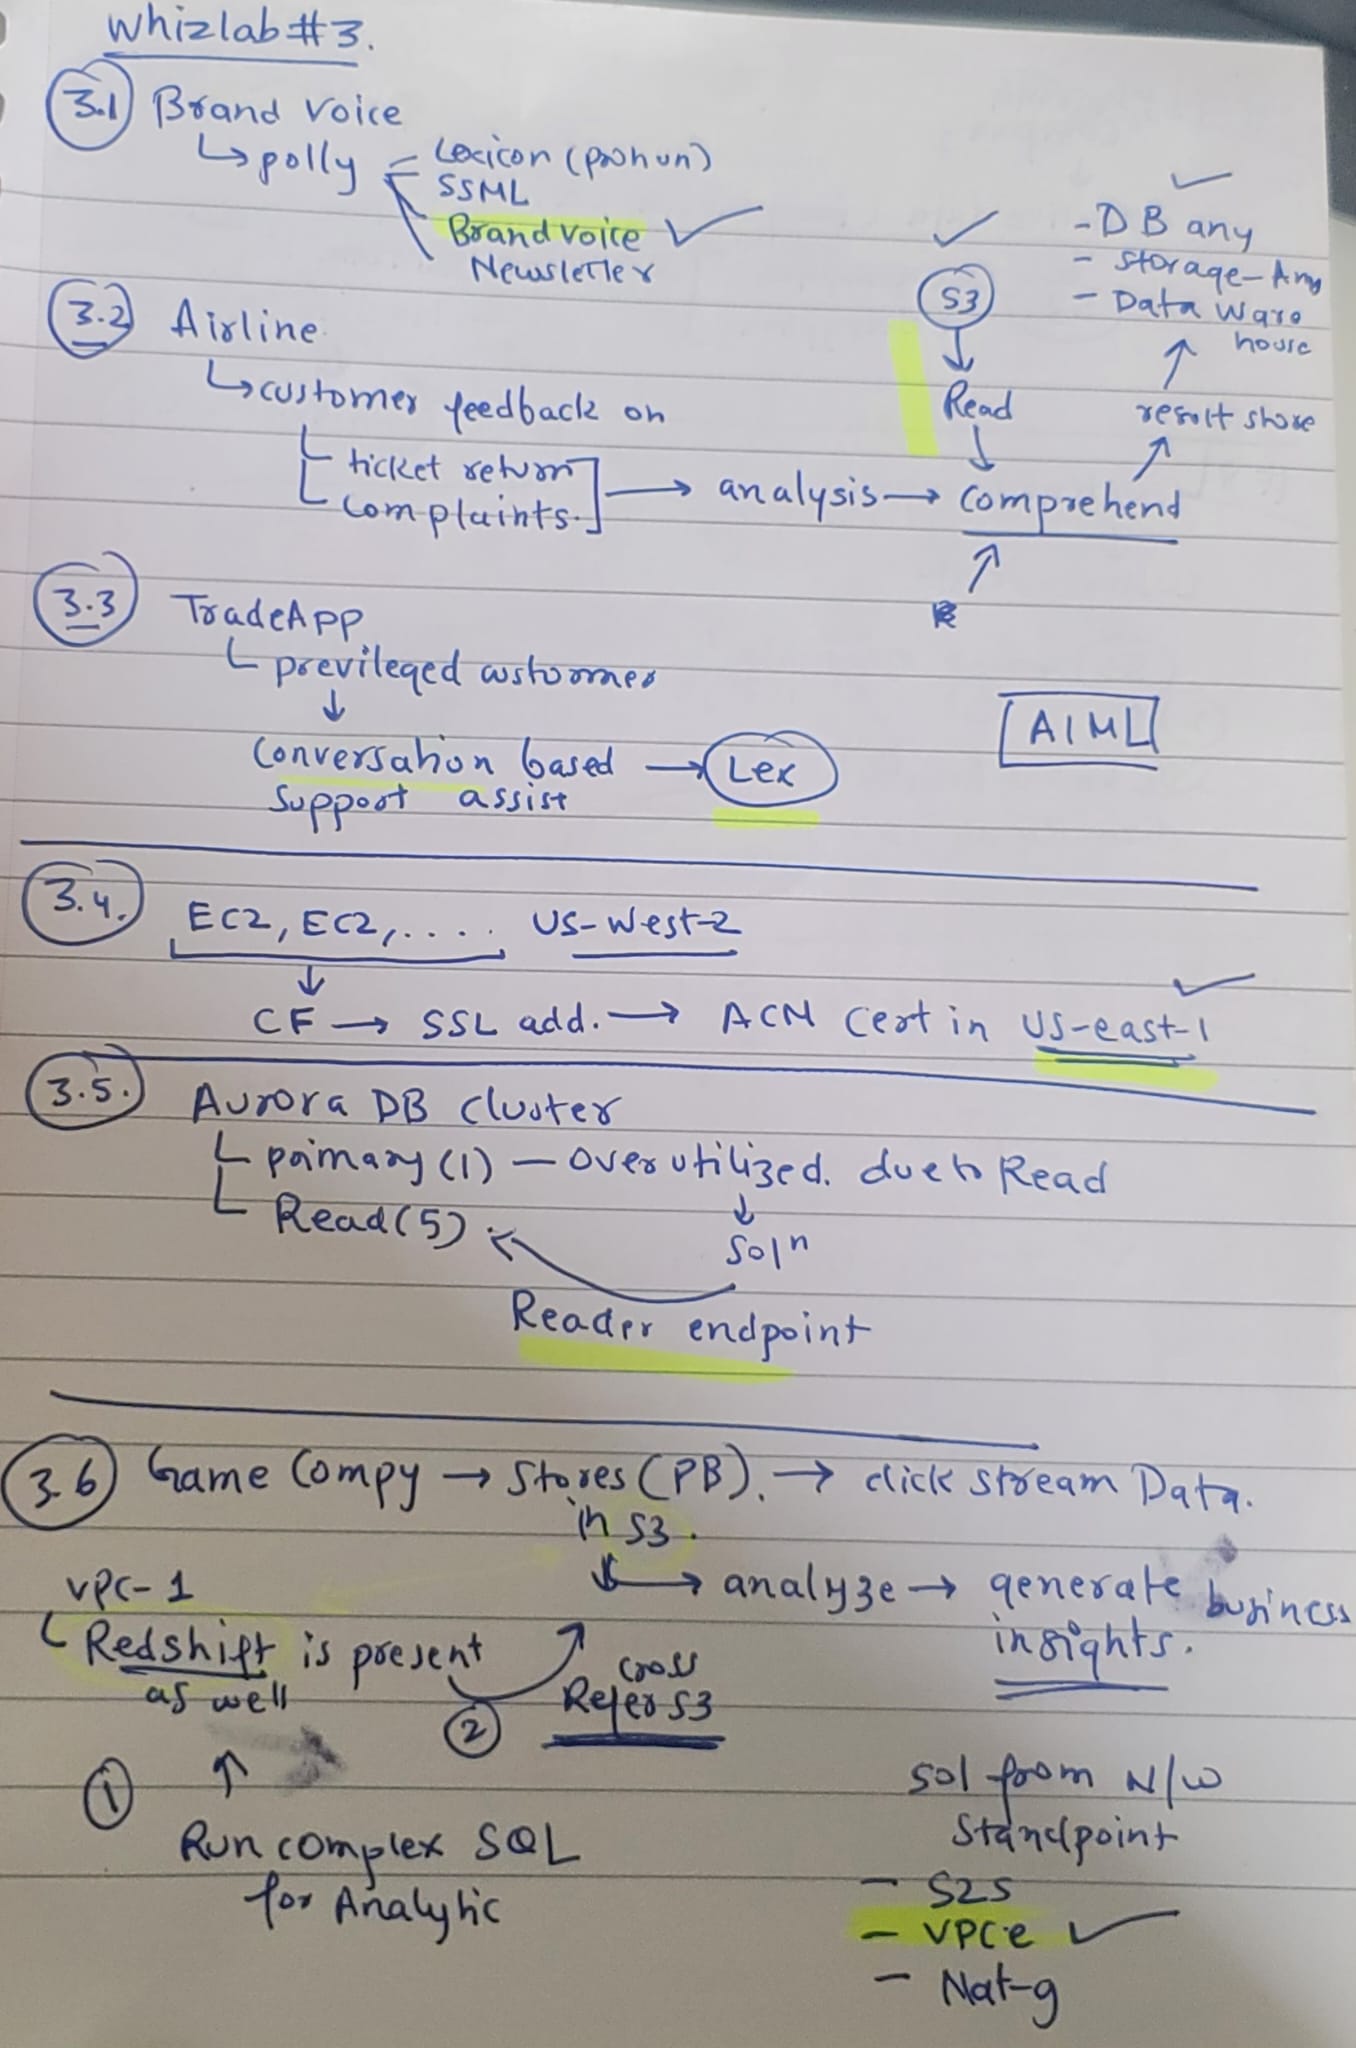 Whizlab #3.
3.1 Brand Voice
↳ polly
Lexicon (pronun)
SSML
Brand voice ✓
Newsletter
3.2 Airline
↳ customer feedback on
ticket return
complaints.
→ analysis → Comprehend
✓
S3
↓
Read
↓
✓
- DB any
- storage - Any
- Data Ware
house
↑
result store
↑
3.3 TradeApp
previleged customer
↓
Conversation based → Lex
Support assist
AIML
3.4. EC2, EC2, .... US-West-2
↓
CF → SSL add. → ACM Cert in US-east-1 ✓
3.5. Aurora DB cluster
primary (1) — over utilized. due to Read
Read (5)
↓
Solⁿ
Reader endpoint
3.6 Game Compy → Stores (PB). → click stream Data.
in S3.
→ analyze → generate business
insights.
VPC-1
Redshift is present
as well
② cross
Refer S3
① ↑
Run complex SQL
for Analytic
sol from N/W
Standpoint
- S2S
- VPCe ✓
- Nat-g